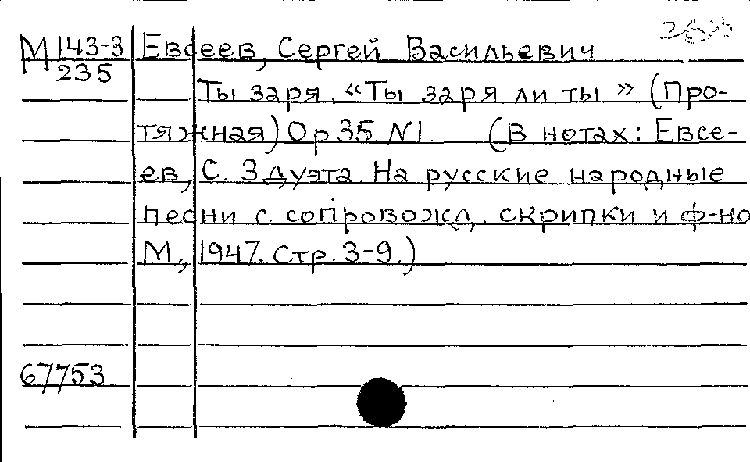 М 143-3 Евсеев, Сергей Васильевич
235
Ты заря. «Ты заря ли ты» (Про-
тяжная) Op.35 N1. (В нотах: Евсе-
ев, С. 3 дуэта. На русские народные
песни с сопровожд. скрипки и ф-но
М., 1947. Стр. 3-9.)
67753